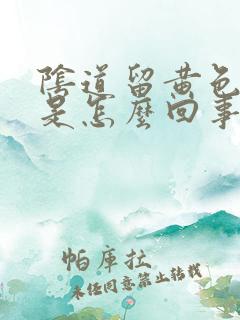 陰道留黃色
是怎麼回事
帕庫拉
未经同意禁止转载